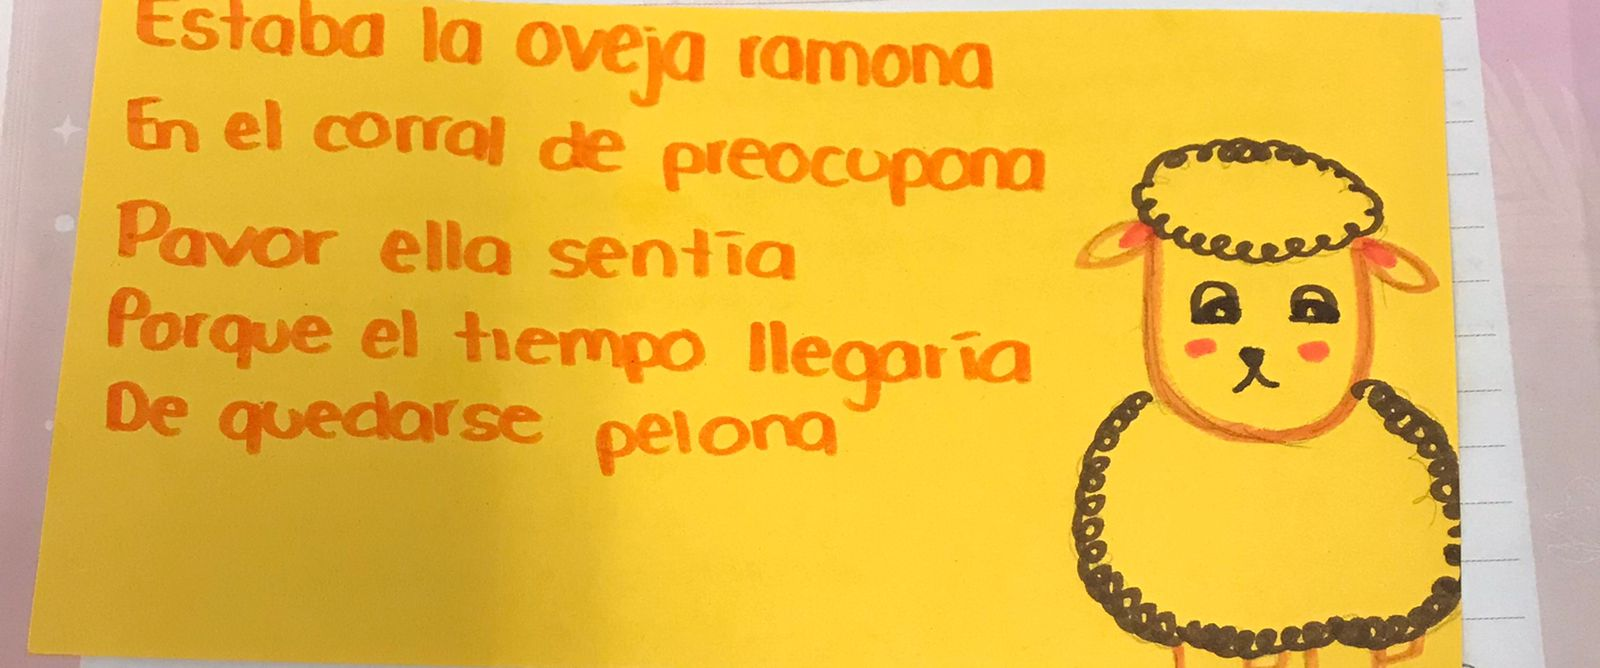 Estaba la oveja ramona
En el corral de preocupona
Pavor ella sentía
Porque el tiempo llegaría
De quedarse pelona